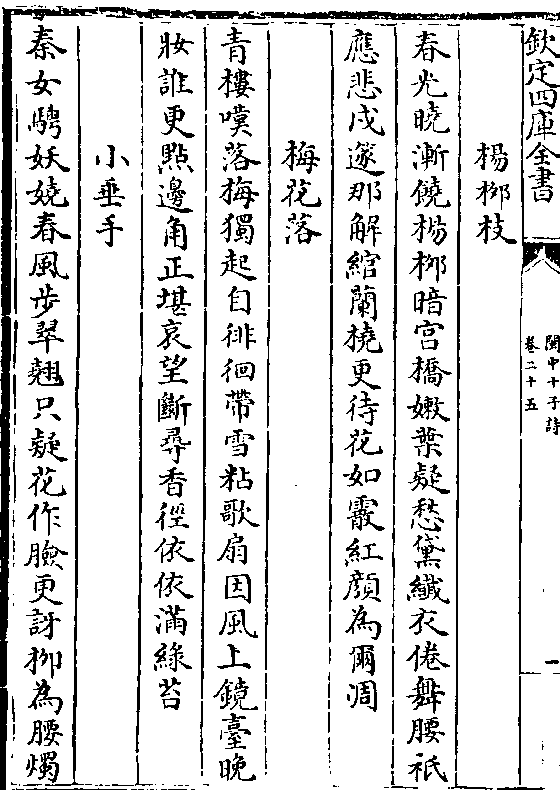 欽定四庫全書
閩中十子詩
卷二十五
一
楊栁枝
春光曉漸饒楊栁暗宫橋嫩葉疑愁黛纎衣倦舞腰祇
應悲戍邃那解綰蘭橈更待花如霰紅顔為爾凋
梅花落
青樓嘆落梅獨起自徘徊帶雪粘歌扇因風上鏡臺晚
妝誰更㸃邊角正堪哀望斷尋香徑依依滿緑苔
小垂手
秦女騁妖嬈春風步翠翹只疑花作臉更訝栁為腰燭